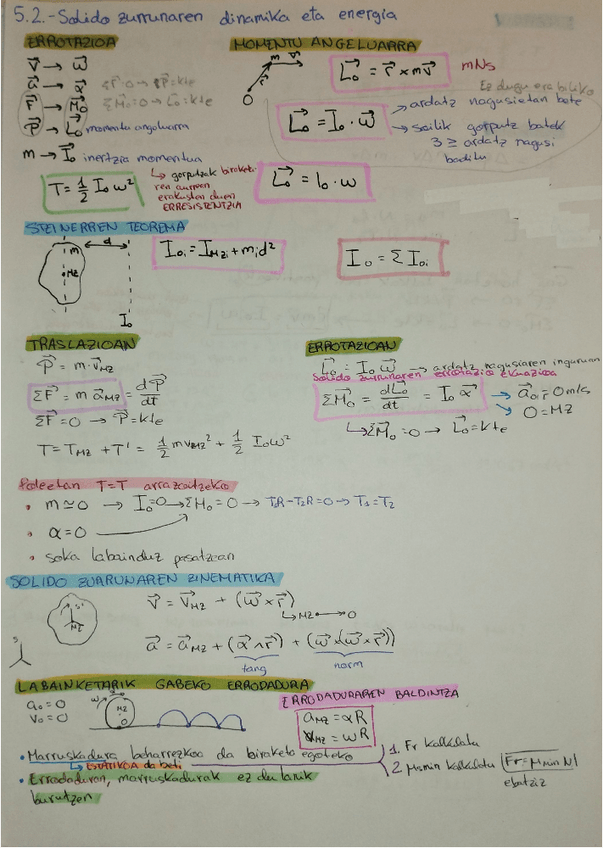 5.2.-Solido zurrunaren dinamika eta energia
ERROTAZIOA
v⃗ → ω⃗
a⃗ → α⃗
F⃗ → M⃗o
P⃗ → L⃗o momentu angeluarra
m → I⃗o inertzia momentua
ΣF⃗=0 → P⃗=kte
ΣM⃗o=0 → L⃗o=kte
↳ gorputzak biraketaren aurrean erakusten duen ERRESISTENTZIA
T = 1/2 Io ω²
MOMENTU ANGELUARRA
m v⃗
r⃗
O
L⃗o = r⃗ x m v⃗
mNs
Ez dugu erabiliko
L⃗o = Io · ω⃗
→ ardatz nagusietan bete
→ soilik gorputz batek
3 ≥ ardatz nagusi
baditu
L⃗o = Io · ω
STEINERREN TEOREMA
d
m
MZ
Io
Ioi = IMZi + mi d²
Io = Σ Ioi
TRASLAZIOAN
P⃗ = m · v⃗MZ
ΣF⃗ = m a⃗MZ = dP⃗/dt
ΣF⃗ = 0 → P⃗ = kte
T = TMZ + T' = 1/2 m vMZ² + 1/2 Io ω²
ERROTAZIOAN
L⃗o = Io ω⃗ → ardatz nagusiaren inguruan
Solido zurrunaren errotazio ekuazioa
ΣM⃗o = dL⃗o/dt = Io α⃗
→ a⃗o = 0 m/s
→ O = MZ
↳ ΣM⃗o = 0 → L⃗o = kte
Poleetan T=T arrazoitzeko
• m ≃ 0 → Io=0 → ΣMo = 0 → T1R - T2R = 0 → T1 = T2
• α = 0
• soka labainduz pasatzean
SOLIDO ZURRUNAREN ZINEMATIKA
S'
MZ
S
v⃗ = v⃗MZ + (ω⃗ x r⃗)
↳ MZ → O
a⃗ = a⃗MZ + (α⃗ ∧ r⃗) + (ω⃗ x (ω⃗ x r⃗))
tang
norm
LABAINKETARIK GABEKO ERRODADURA
ao = 0
vo = 0
ω
MZ
O
ERRODADURAREN BALDINTZA
aMZ = αR
vMZ = ωR
• Marruskadura beharrezkoa da biraketa egoteko
↳ ESTATIKOA da beti
1. Fr kalkulatu
2 μsmin kalkulatu Fr = μmin N
ebatziz
• Errodaduran, marruskadurak ez du lanik
burutzen